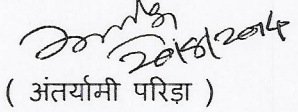 20/8/2014
( अंतर्यामी परिड़ा )